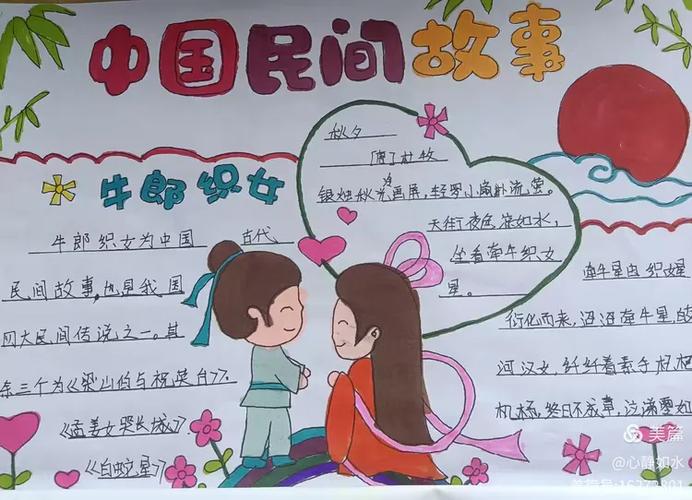 中国民间故事
牛郎织女
牛郎织女为中国 古代
民间故事，也是我国
四大民间传说之一。其
余三个为《梁山伯与祝英台》、
《孟姜女哭长城》
《白蛇
秋夕
唐 杜牧
银烛秋光冷画屏，轻罗小扇扑流萤。
天街夜色凉如水，
坐看牵牛织女
星。
牵牛星由织女星
衍化而来，迢迢牵牛星
河汉女，纤纤 素手
机杼，终日不成章，泣涕零如
美篇
@心静如水